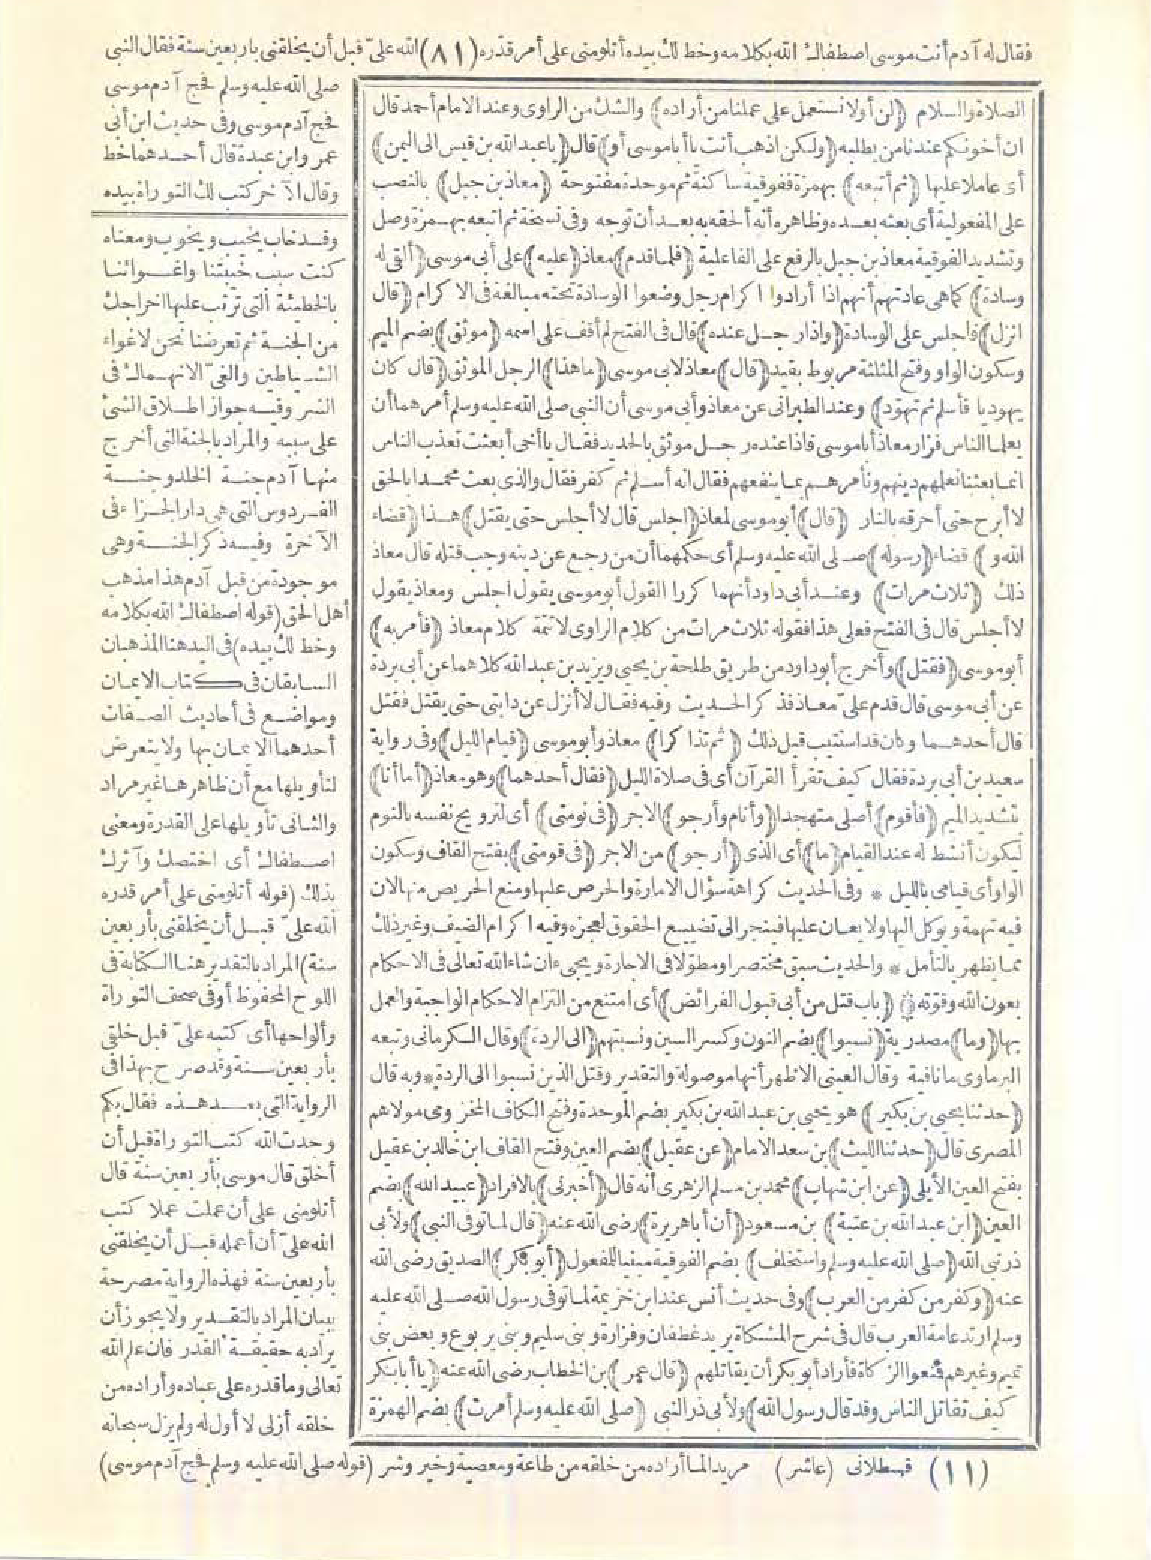 فقال له آدم أنت موسى اصطفاك الله بكلامه وخط لك بيده أتلومنى على أمر قدّره (٨١) الله علىّ قبل أن يخلقنى بأربعين سنة فقال النبى
صلى الله عليه وسلم فحج آدم موسى
فحج آدم موسى وفى حديث ابن أبى
عمر وابن عبدة قال أحدهما خط
وقال الآخر كتب لك التوراة بيده
وقد خاب يخيب ويخوب ومعناه
كنت سبب خيبتنا واغوائنا
بالخطيئة التى ترتب عليها اخراجك
من الجنة ثم تعرضنا نحن لاغواء
الشياطين والغىّ الانهماك فى
الشر وفيه جواز اطلاق الشئ
على سببه والمراد بالجنة التى أخرج
منها آدم جنة الخلد وجنة
الفردوس التى هى دار الجزاء فى
الآخرة وفيه ذكر الجنة وهى
موجودة من قبل آدم هذا مذهب
أهل الحق (قوله اصطفاك الله بكلامه
وخط لك بيده) فى اليد هنا المذهبان
السابقان فى كتاب الايمان
ومواضع فى أحاديث الصفات
أحدهما الايمان بها ولا يتعرض
لتأويلها مع أن ظاهرها غير مراد
والثانى تأويلها على القدرة ومعنى
اصطفاك أى اختصك وآثرك
بذلك (قوله أتلومنى على أمر قدره
الله علىّ قبل أن يخلقنى بأربعين
سنة) المراد بالتقدير هنا الكتابة فى
اللوح المحفوظ أو فى صحف التوراة
وألواحها أى كتبه علىّ قبل خلقى
بأربعين سنة وقد صرح بهذا فى
الرواية التى بعد هذه فقال بكم
وجدت الله كتب التوراة قبل أن
أخلق قال موسى بأربعين سنة قال
أتلومنى على أن عملت عملا كتب
الله علىّ أن أعمله قبل أن يخلقنى
بأربعين سنة فهذه الرواية مصرحة
ببيان المراد بالتقدير ولا يجوز أن
يراد به حقيقة القدر فان علم الله
تعالى وما قدره على عباده وأراده من
خلقه أزلى لا أول له ولم يزل سبحانه
الصلاة والسلام (لن أو لا نستعمل على عملنا من أراده) والشك من الراوى وعند الامام أحمد قال
ان أخونكم عندنا من يطلبه (ولكن اذهب أنت يا أبا موسى أو) قال (يا عبد الله بن قيس الى اليمن)
أى عاملا عليها (ثم أتبعه) بهمزة ففوقية ساكنة ثم موحدة مفتوحة (معاذ بن جبل) بالنصب
على المفعولية أى بعثه بعده وظاهره أنه ألحقه به بعد أن توجه وفى نسخة ثم اتبعه بهمزة وصل
وتشديد الفوقية معاذ بن جبل بالرفع على الفاعلية (فلما قدم) معاذ (عليه) على أبى موسى (ألقى له
وسادة) كما هى عادتهم أنهم اذا أرادوا اكرام رجل وضعوا الوسادة تحته مبالغة فى الاكرام (قال
انزل) فاجلس على الوسادة (واذا رجل عنده) قال فى الفتح لم أقف على اسمه (موثق) بضم الميم
وسكون الواو وفتح المثلثة مربوط بقيد (قال) معاذ لابى موسى (ما هذا) الرجل الموثق (قال كان
يهوديا فأسلم ثم تهوّد) وعند الطبرانى عن معاذ وأبى موسى أن النبى صلى الله عليه وسلم أمرهما أن
يعلما الناس فزار معاذ أبا موسى فاذا عنده رجل موثق بالحديد فقال يا أخى أبعثت تعذب الناس
انما بعثنا نعلمهم دينهم ونأمرهم بما ينفعهم فقال انه أسلم ثم كفر فقال والذى بعث محمدا بالحق
لا أبرح حتى أحرقه بالنار (قال) أبو موسى لمعاذ (اجلس قال لا أجلس حتى يقتل) هذا (قضاء
الله و) قضاء (رسوله) صلى الله عليه وسلم أى حكمهما أن من رجع عن دينه وجب قتله قال معاذ
ذلك (ثلاث مرات) وعند أبى داود أنهما كررا القول أبو موسى يقول اجلس ومعاذ يقول
لا أجلس قال فى الفتح فعلى هذا فقوله ثلاث مرات من كلام الراوى لا تتمة كلام معاذ (فأمر به)
أبو موسى (فقتل) وأخرج أبو داود من طريق طلحة بن يحيى ويزيد بن عبد الله كلاهما عن أبى بردة
عن أبى موسى قال قدم علىّ معاذ فذكر الحديث وفيه فقال لا أنزل عن دابتى حتى يقتل فقتل
قال أحدهما وكان قد استتيب قبل ذلك (ثم تذاكرا) معاذ وأبو موسى (قيام الليل) وفى رواية
سعيد بن أبى بردة فقال كيف تقرأ القرآن أى فى صلاة الليل (فقال أحدهما) وهو معاذ (أما أنا)
بتشديد الميم (فأقوم) أصلى متهجدا (وأنام وأرجو) الاجر (فى نومتى) أى لترويح نفسه بالنوم
ليكون أنشط له عند القيام (ما) أى الذى (أرجو) من الاجر (فى قومتى) بفتح القاف وسكون
الواو أى قيامى بالليل * وفى الحديث كراهة سؤال الامارة والحرص عليها ومنع الحريص منها لان
فيه تهمة ويوكل اليها ولا يعان عليها فينجر الى تضييع الحقوق لعجزه وفيه اكرام الضيف وغير ذلك
مما يظهر بالتأمل * والحديث سبق مختصرا ومطوّلا فى الاجارة ويجىء ان شاء الله تعالى فى الاحكام
بعون الله وقوّته (باب قتل من أبى قبول الفرائض) أى امتنع من التزام الاحكام الواجبة والعمل
بها (وما) مصدرية (نسبوا) بضم النون وكسر السين ونسبتهم (الى الردة) وقال الكرمانى وتبعه
البرماوى ما نافية وقال العينى الاظهر أنها موصولة والتقدير وقتل الذين نسبوا الى الردة * وبه قال
(حدثنا يحيى بن بكير) هو يحيى بن عبد الله بن بكير بضم الموحدة وفتح الكاف المخزومى مولاهم
المصرى قال (حدثنا الليث) بن سعد الامام (عن عقيل) بضم العين وفتح القاف ابن خالد بن عقيل
بفتح العين الأيلى (عن ابن شهاب) محمد بن مسلم الزهرى أنه قال (أخبرنى) بالافراد (عبيد الله) بضم
العين (ابن عبد الله بن عتبة) بن مسعود (أن أبا هريرة) رضى الله عنه (قال لما توفى النبى) ولأبى
ذر نبى الله (صلى الله عليه وسلم واستخلف) بضم الفوقية مبنيا للمفعول (أبو بكر) الصديق رضى الله
عنه (وكفر من كفر من العرب) وفى حديث أنس عند ابن خزيمة لما توفى رسول الله صلى الله عليه
وسلم ارتد عامة العرب قال فى شرح المشكاة يريد غطفان وفزارة وبنى سليم وبنى يربوع وبعض بنى
تميم وغيرهم فمنعوا الزكاة فأراد أبو بكر أن يقاتلهم (قال عمر) بن الخطاب رضى الله عنه (يا أبا بكر
كيف تقاتل الناس وقد قال رسول الله) ولأبى ذر النبى (صلى الله عليه وسلم أمرت) بضم الهمزة
(١١) قسطلانى (عاشر) مريدا لما أراده من خلقه من طاعة ومعصية وخير وشر (قوله صلى الله عليه وسلم فحج آدم موسى)